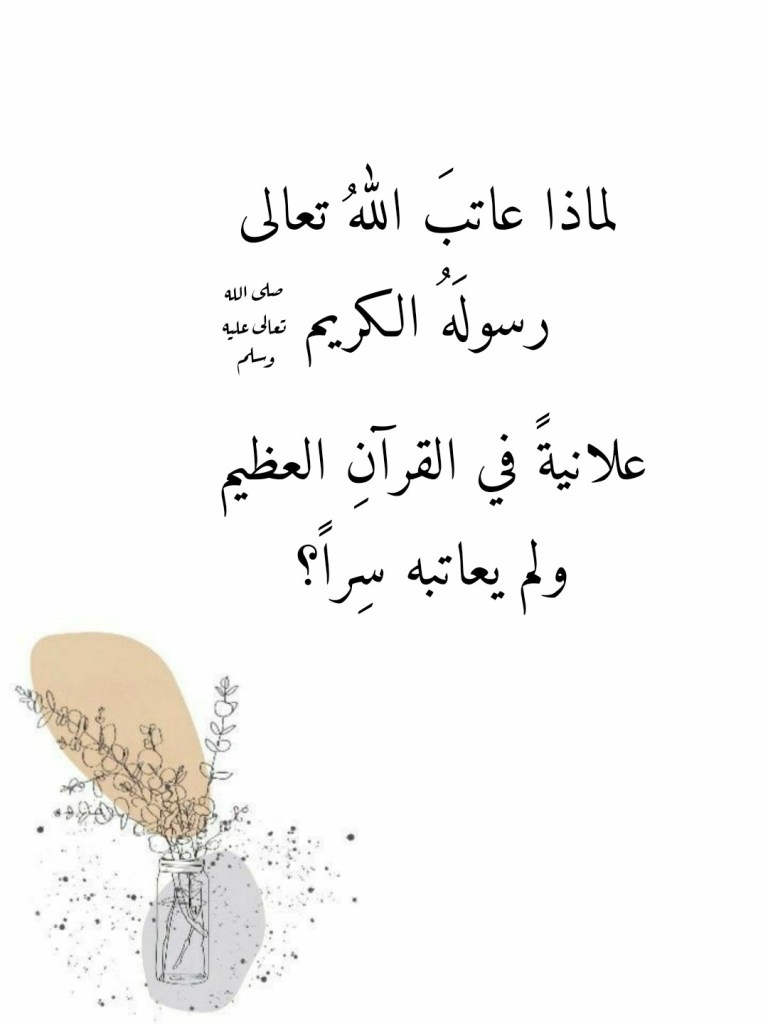 لماذا عاتبَ اللهُ تعالى
رسولَهُ الكريم صلى الله تعالى عليه وسلم
علانيةً في القرآنِ العظيم
ولم يعاتبه سِراً؟